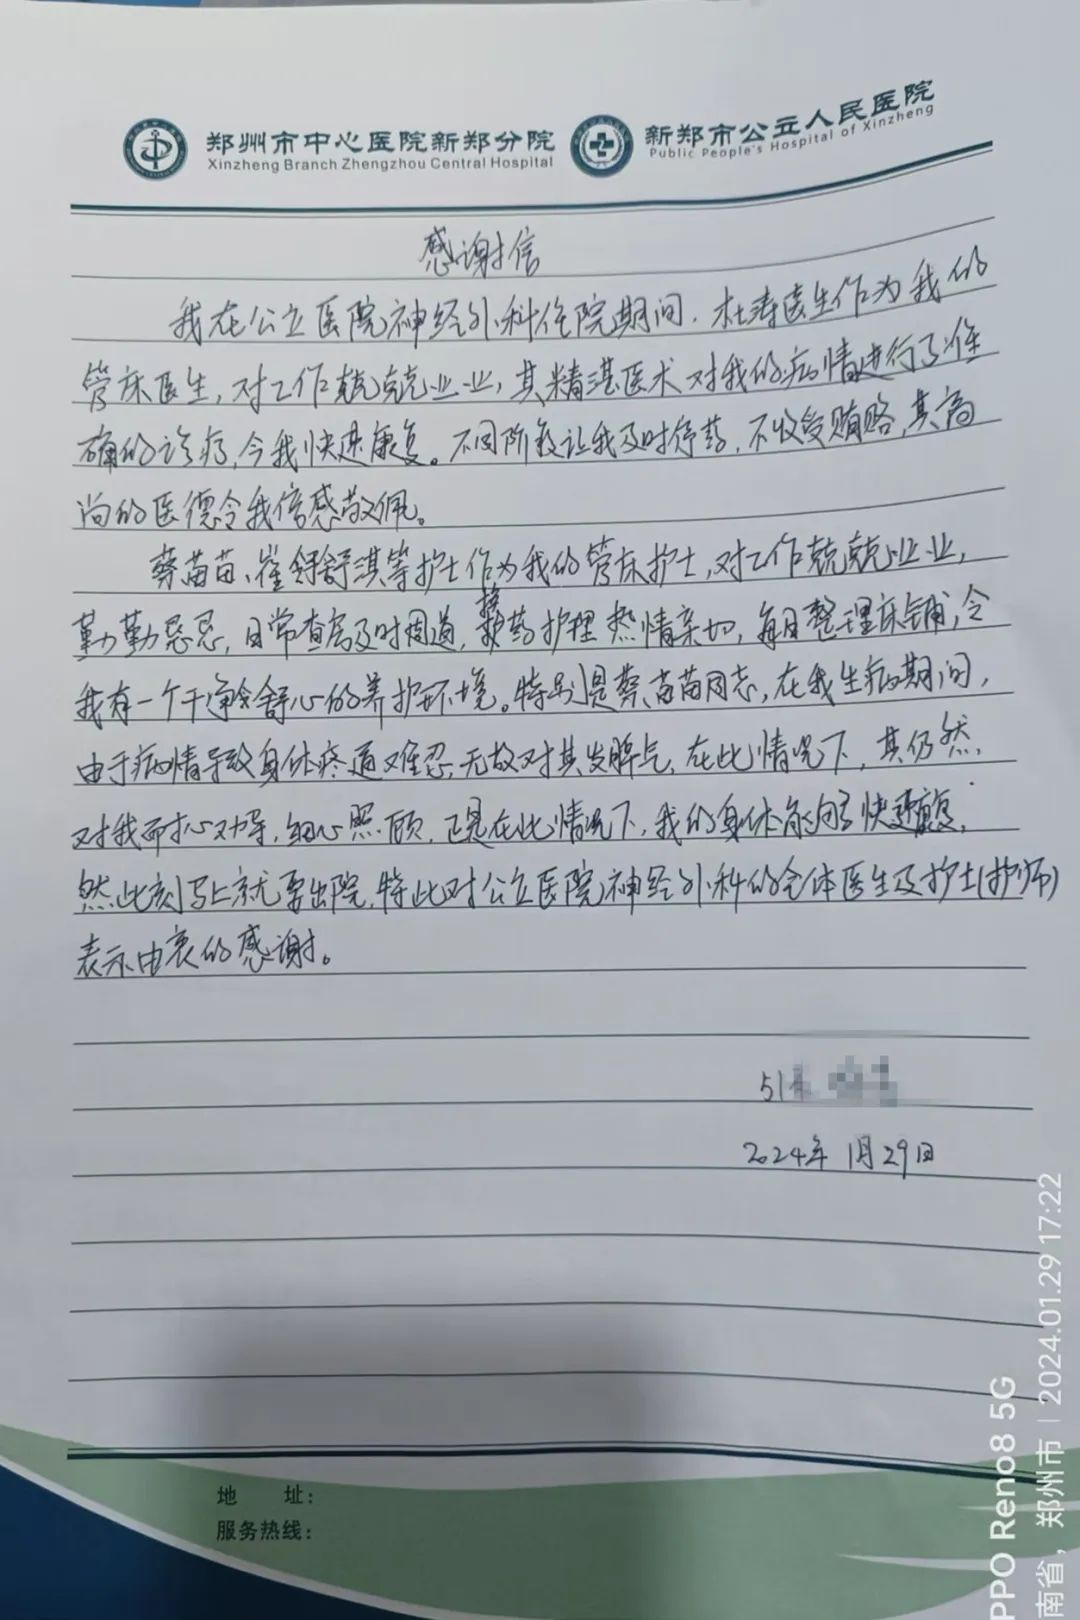 郑州市中心医院新郑分院
Xinzheng Branch Zhengzhou Central Hospital
新郑市公立人民医院
Public People's Hospital of Xinzheng
感谢信
我在公立医院神经外科住院期间，杜涛医生作为我的
管床医生，对工作兢兢业业，其精湛医术对我的病情进行了准
确的诊疗，令我快速康复。不同阶段让我及时停药，不收受贿赂，其高
尚的医德令我倍感敬佩。
蔡苗苗、崔舒淇等护士作为我的管床护士，对工作兢兢业业，
勤勤恳恳，日常查房及时周道，换药护理热情亲切，每日整理床铺，令
我有一个干净舒心的养护环境。特别是蔡苗苗同志，在我生病期间，
由于病情导致身体疼通难忍，无故对其发脾气，在此情况下，其仍然
对我耐心劝导，细心照顾，正是在此情况下，我的身体才得到了快速康复，
然此刻马上就要出院，特此对公立医院神经外科的全体医生及护士(护师)
表示由衷的感谢。
51床
2024年1月29日
地 址：
服务热线：
PPO Reno8 5G
南省，郑州市 | 2024.01.29 17:22